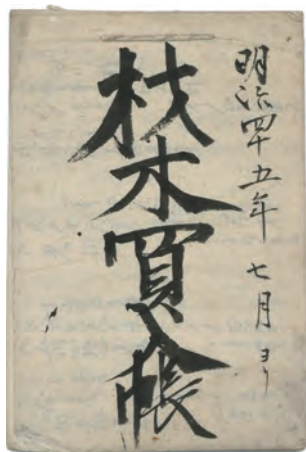 明治四十五年 七月ヨリ
材木買入帳